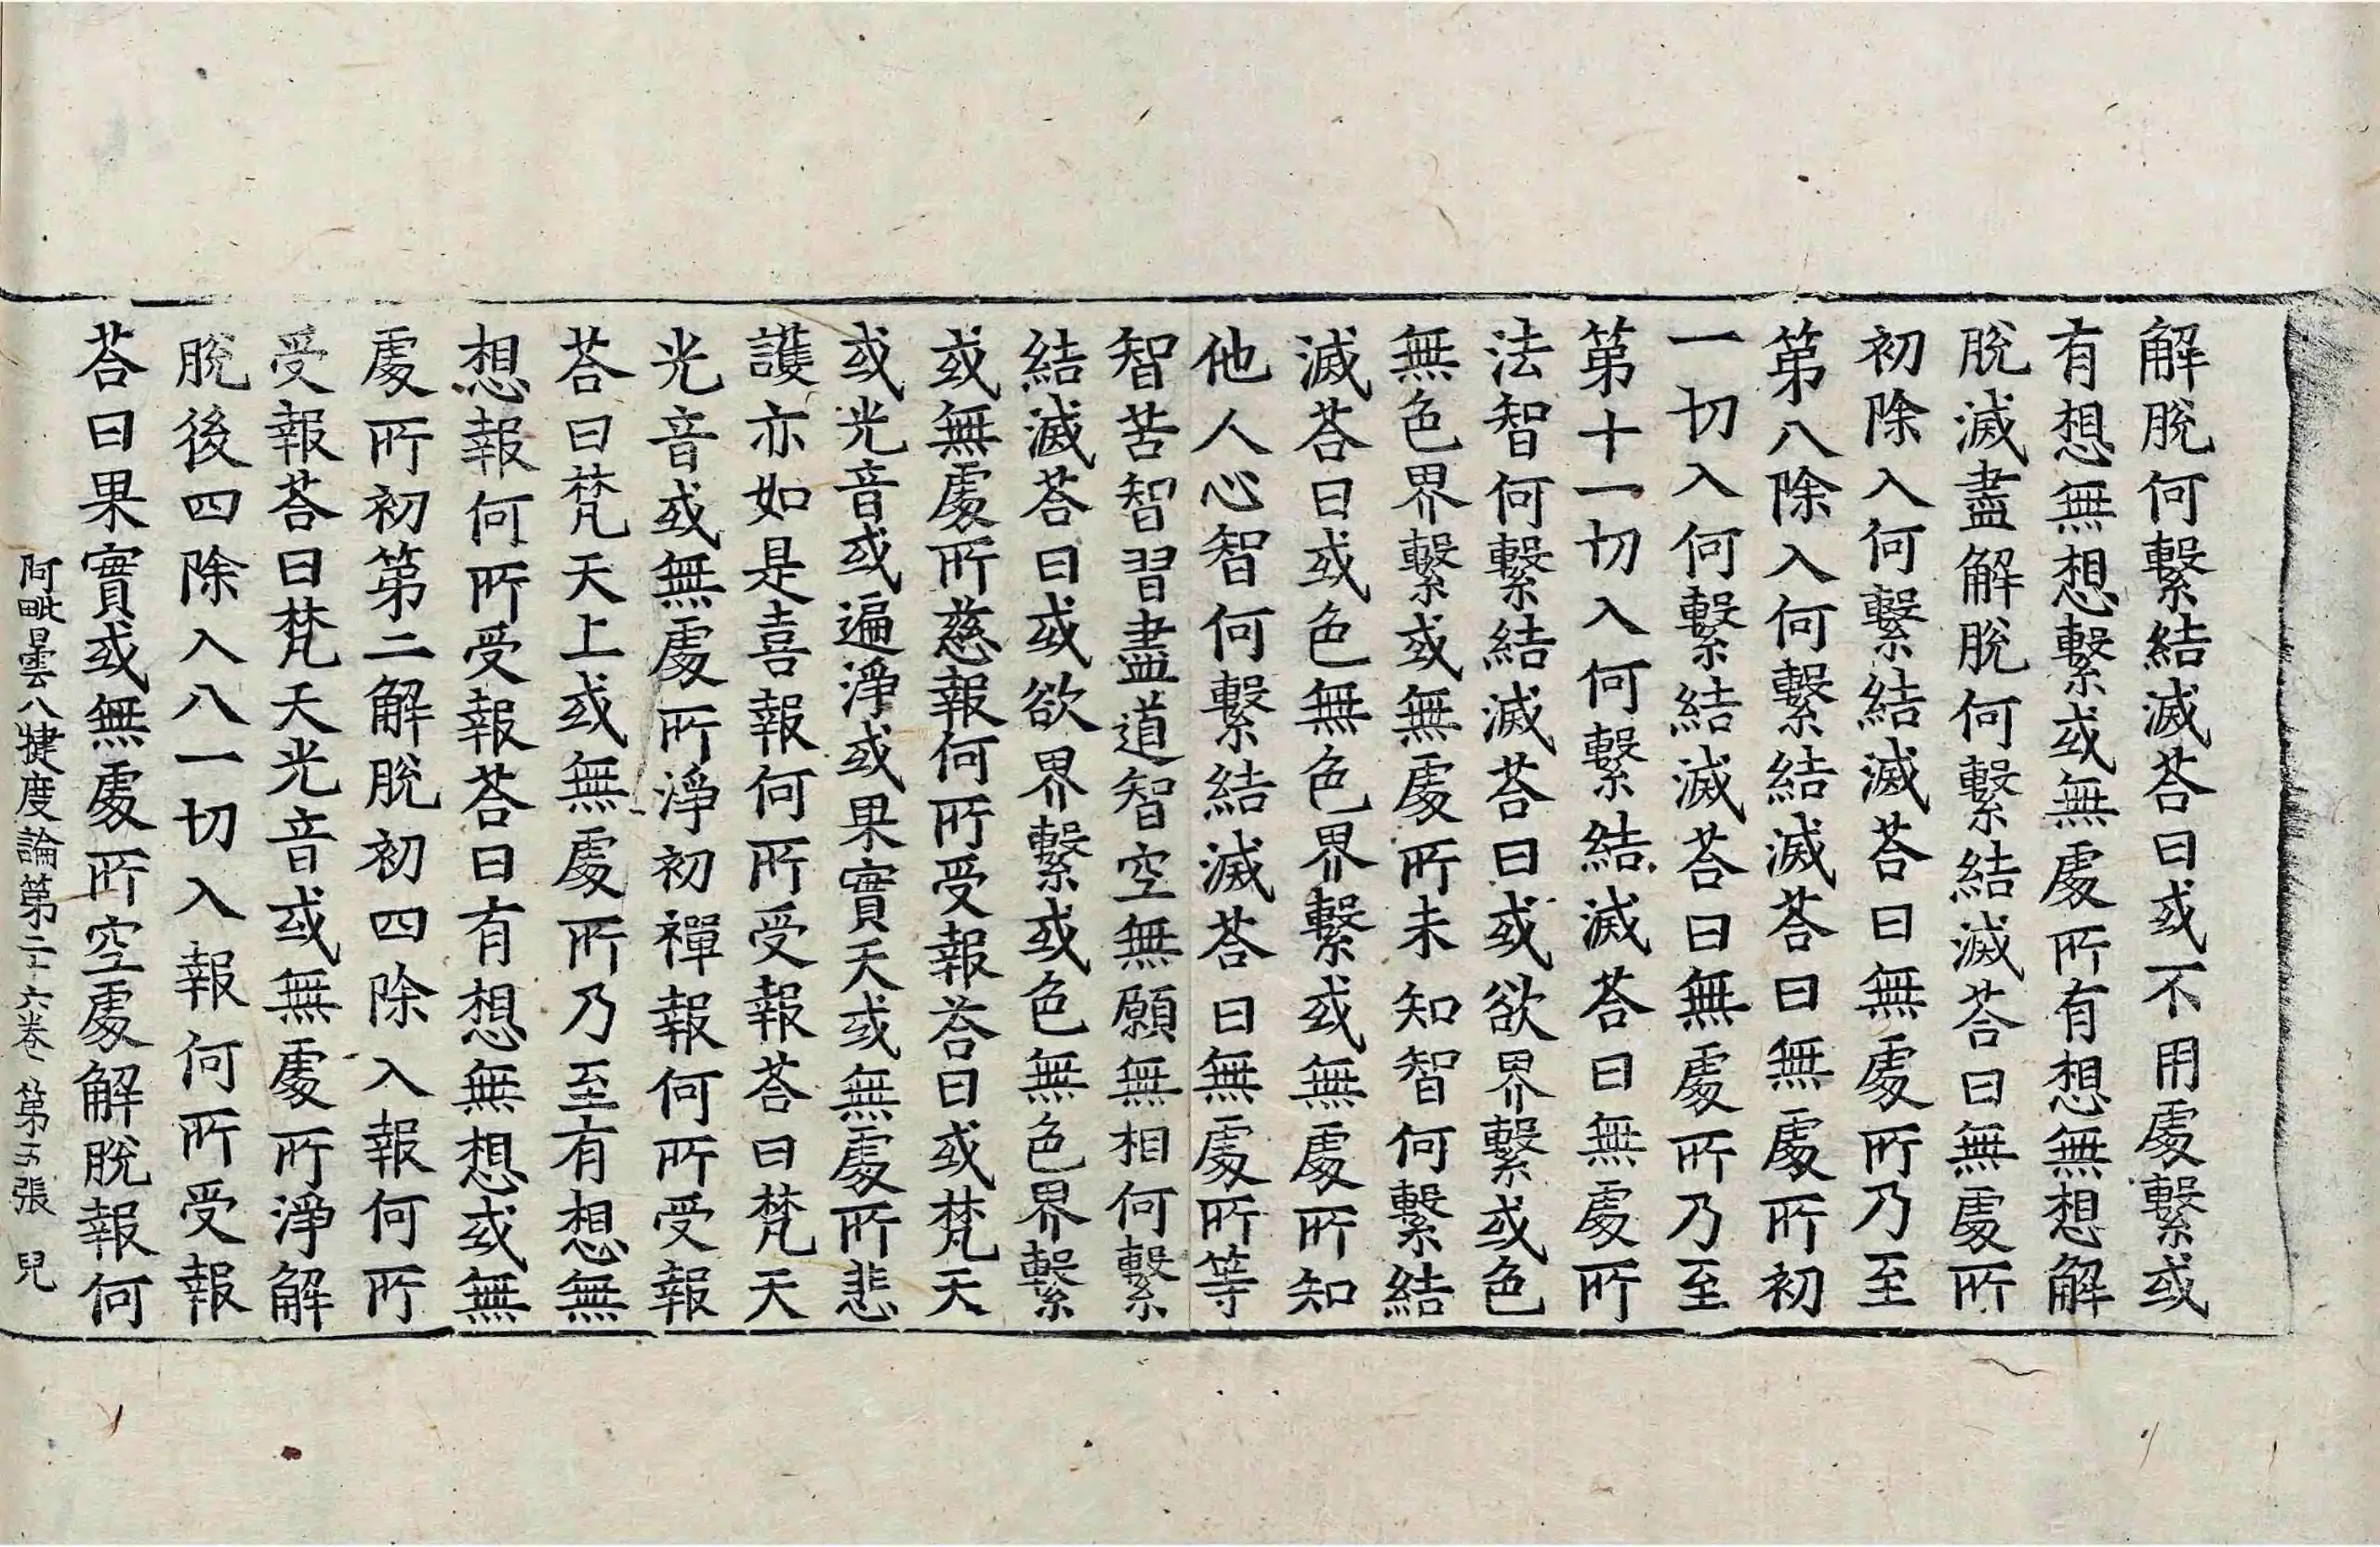 解脫何繫結滅荅曰或不用處繫或
有想無想繫或無處所有想無想解
脫滅盡解脫何繫結滅荅曰無處所
初除入何繫結滅荅曰無處所乃至
第八除入何繫結滅荅曰無處所初
一切入何繫結滅荅曰無處所乃至
第十一切入何繫結滅荅曰無處所
法智何繫結滅荅曰或欲界繫或色
無色界繫或無處所未知智何繫結
滅荅曰或色無色界繫或無處所知
他人心智何繫結滅荅曰無處所等
智苦智習盡道智空無願無相何繫
結滅荅曰或欲界繫或色無色界繫
或無處所慈報何所受報荅曰或梵天
或光音或遍淨或果實天或無處所悲
護亦如是喜報何所受報荅曰梵天
光音或無處所淨初禪報何所受報
荅曰梵天上或無處所乃至有想無
想報何所受報荅曰有想無想或無
處所初第二解脫初四除入報何所
受報荅曰梵天光音或無處所淨解
脫後四除入八一切入報何所受報
荅曰果實或無處所空處解脫報何
阿毗曇八揵度論第二十六卷 第五張 兒